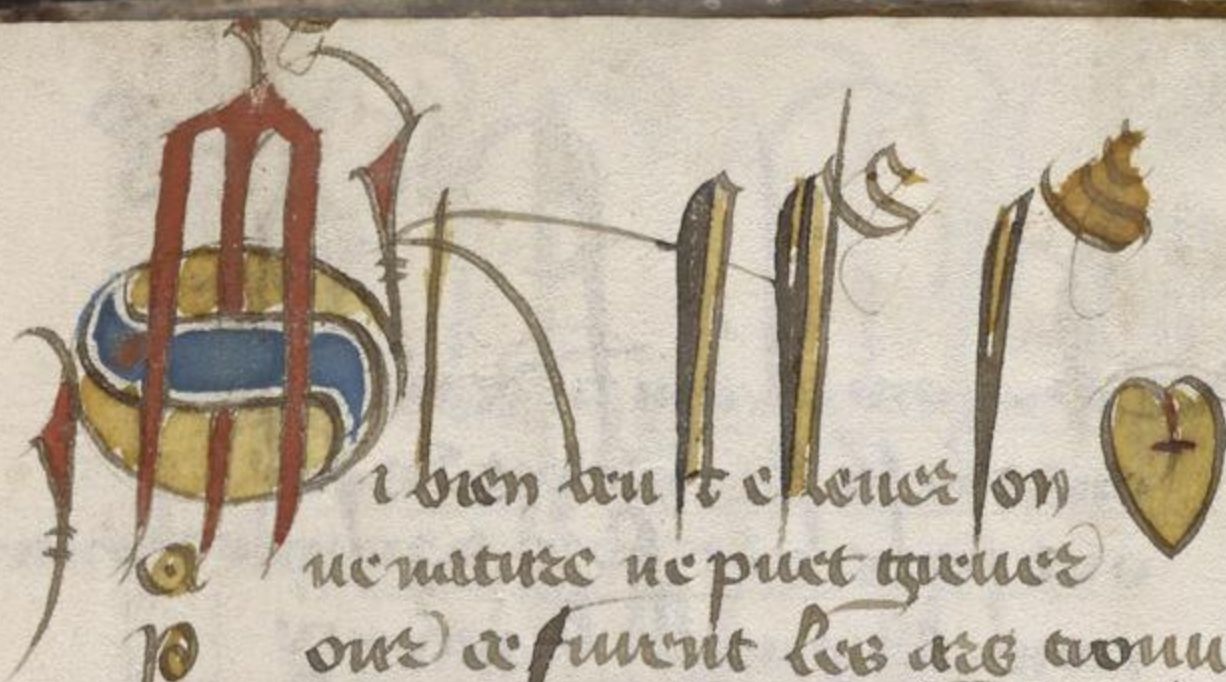 Si bien veuſt eſleuer ſon
Que nature ne puet
Pour ce furent les ars trouu